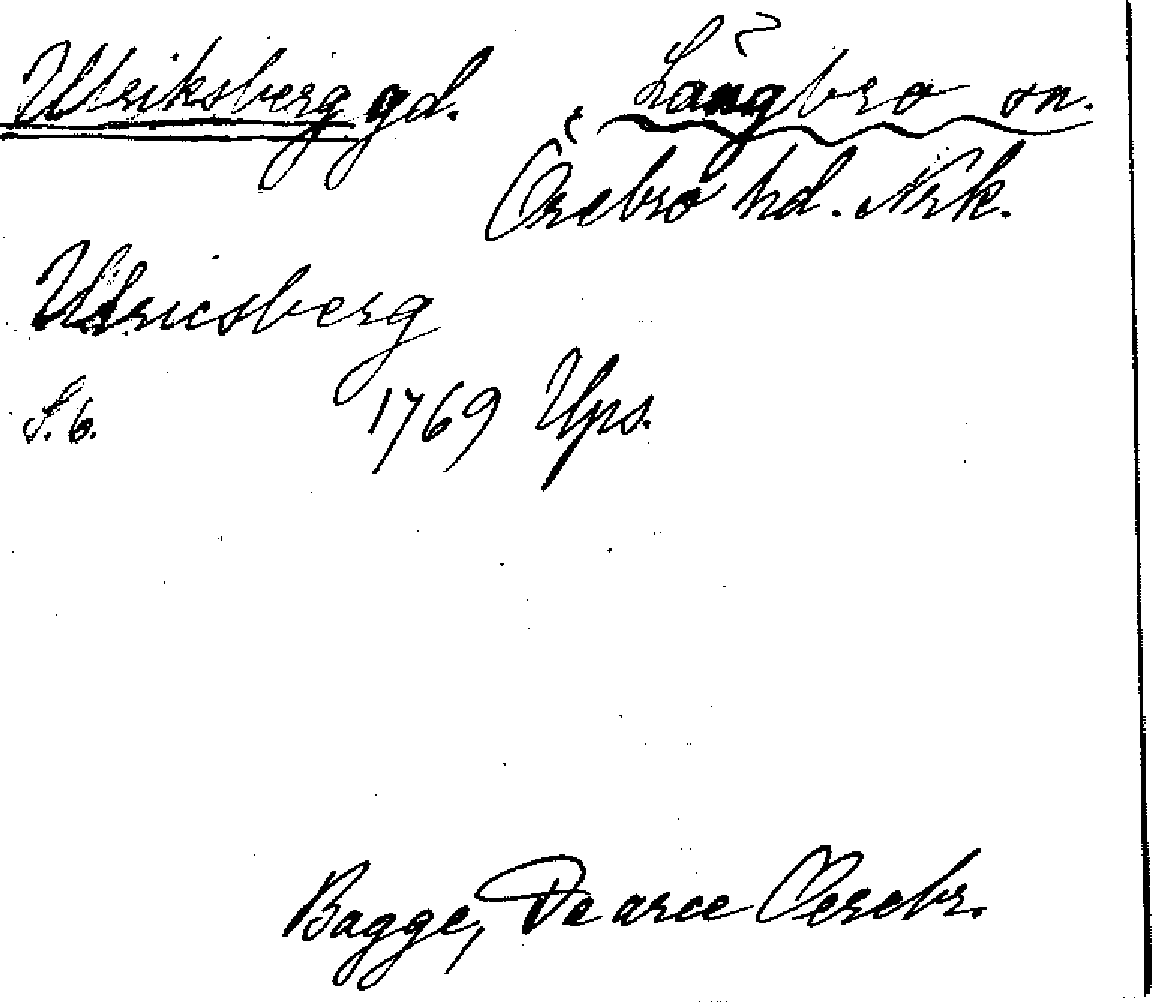 Ulriksberg gd. Långbro sn.
Örebro hd. Nrk.
Ulricsberg
S. 6. 1769 Ups.
Bagge, De arce Oerebr.